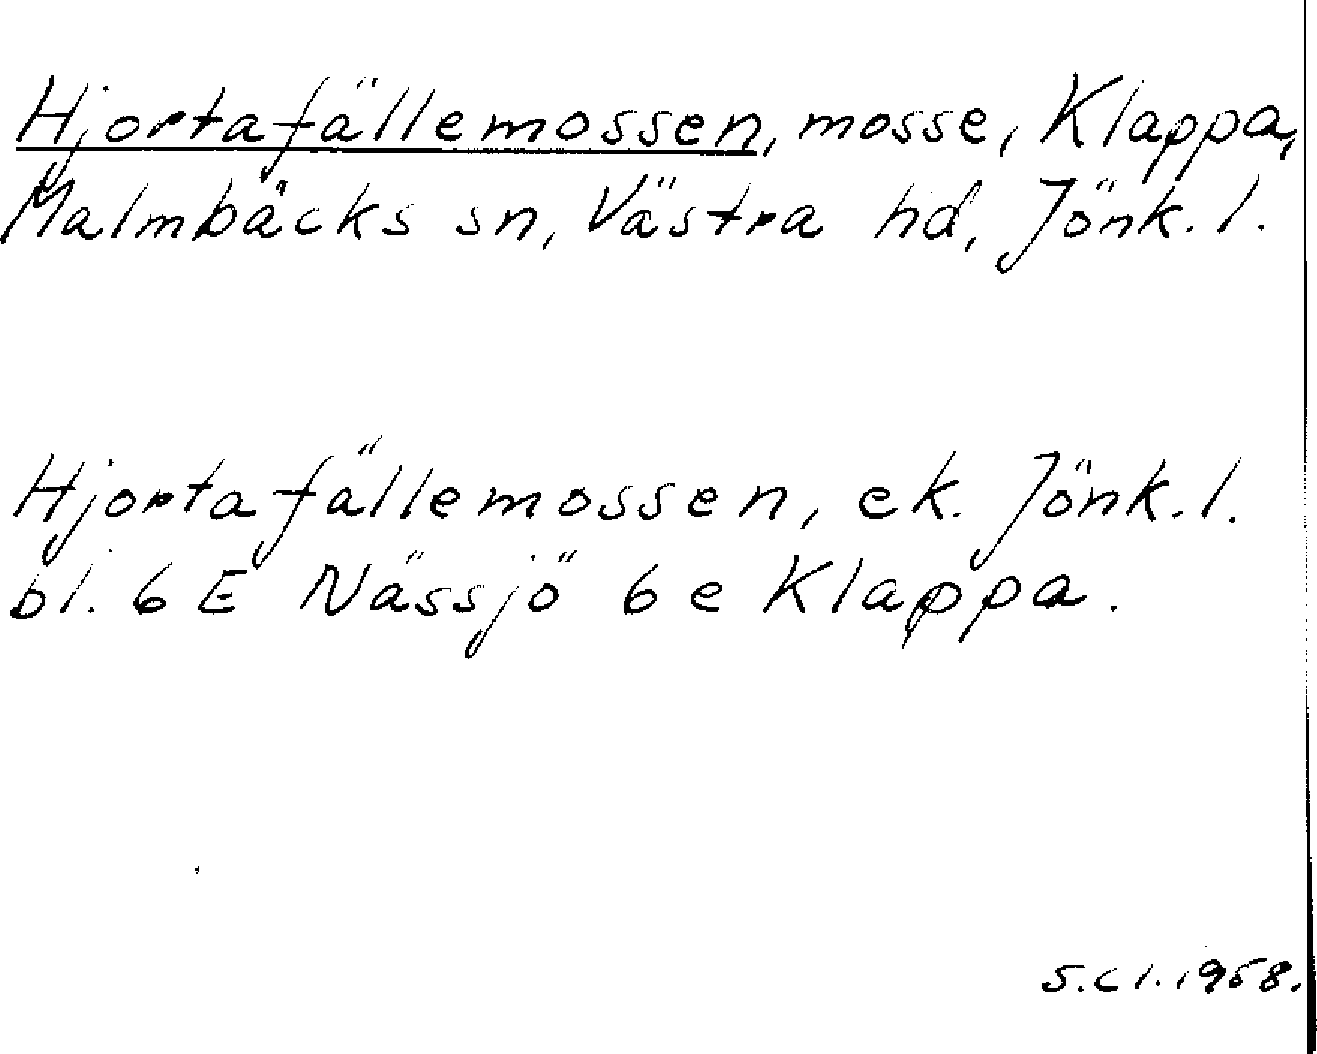 Hjortafällemossen, mosse, Klappa,
Malmbäcks sn, Västra hd, Jönk. l.
Hjortafällemossen, ek. Jönk. l.
bl. 6 E Nässjö 6 e Klappa.
S. Cl. 1958.